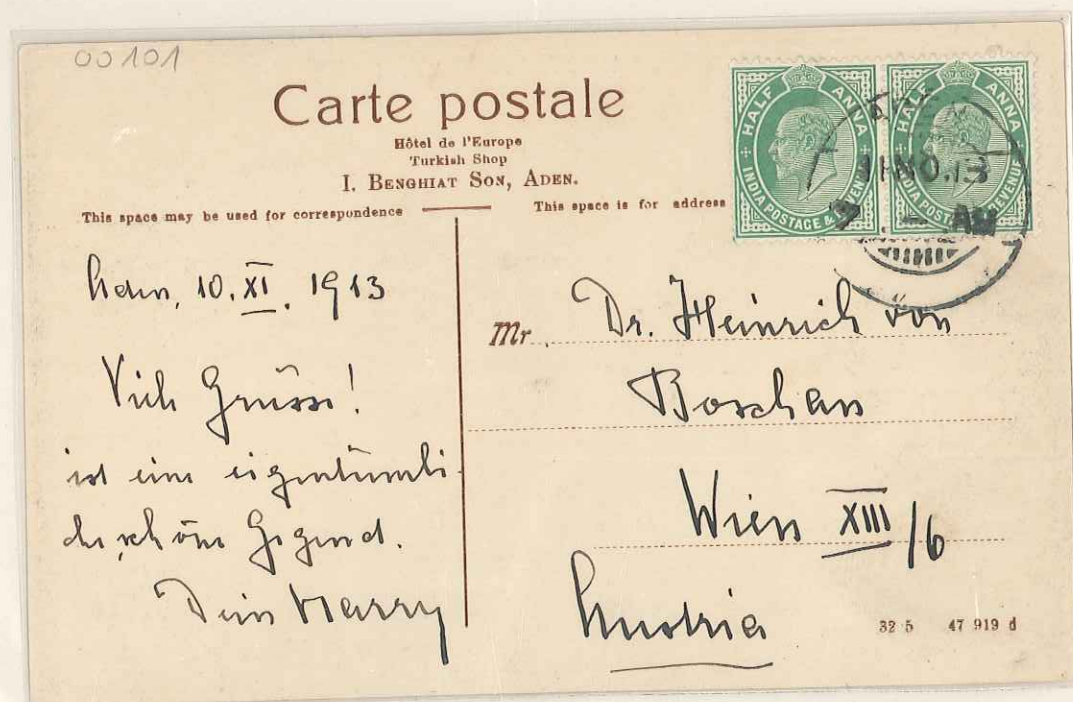 00101
Carte postale
Hôtel de l'Europe
Turkish Shop
I. BENGHIAT SON, ADEN.
This space may be used for correspondence
This space is for address
HALF ANNA
INDIA POSTAGE & REVENUE
HALF ANNA
INDIA POSTAGE & REVENUE
11 NO. 13
AM
Aden, 10. XI. 1913
Viele Grüsse!
ist eine eigentümli
che, schöne Gegend.
Dein Harry
Mr. Dr. Heinrich von
Boschan
Wien XIII/6
Austria
32 5 47 919 d